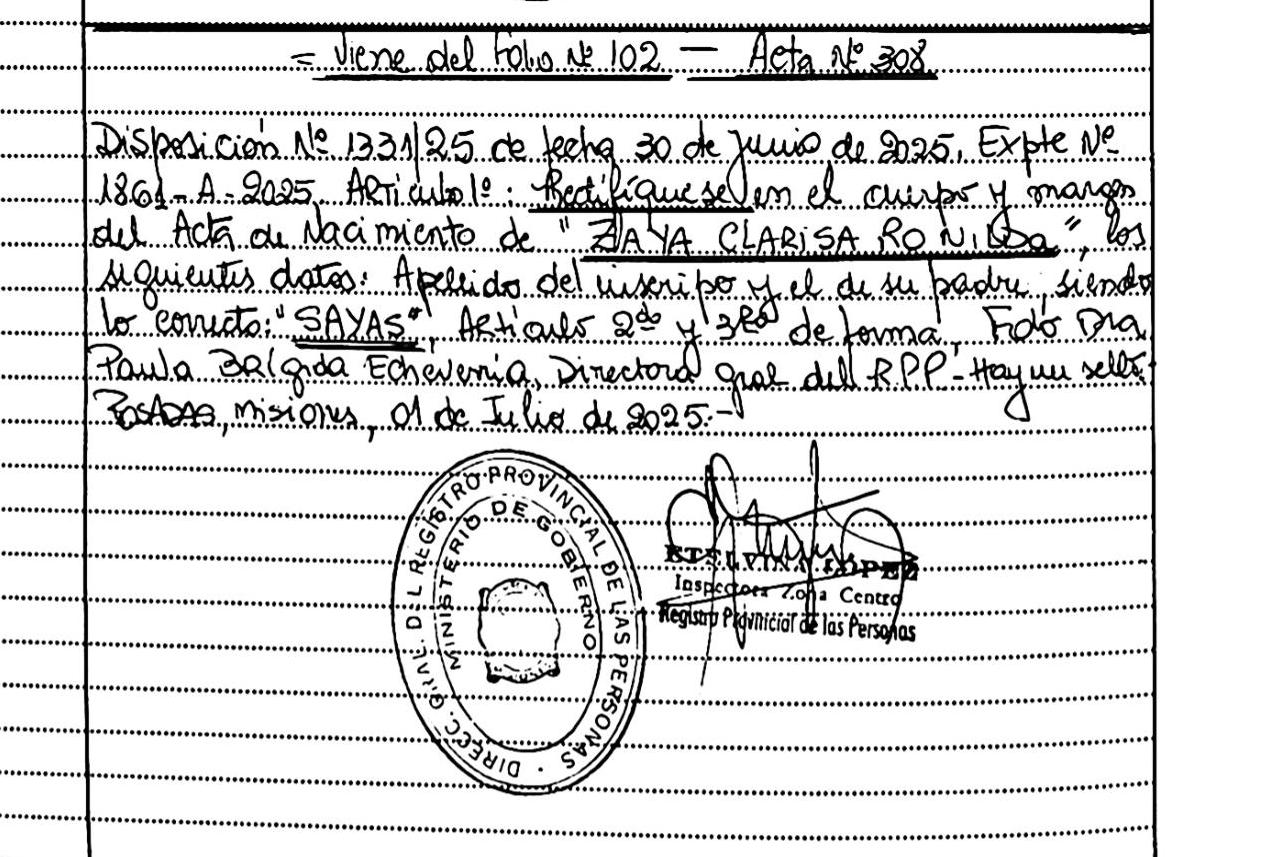 = Viene del Folio Nº 102 — Acta Nº 308
Disposición Nº 1331/25 de fecha 30 de Junio de 2025. Expte Nº
1861-A-2025. Artículo 1º: Rectifíquese en el cuerpo y margen
del Acta de Nacimiento de "ZAYA CLARISA RONILDA", los
siguientes datos: Apellido del inscripto y el de su padre, siendo
lo correcto: "SAYAS", Artículo 2do y 3Ro de forma. Fdo Dra
Paula BRígida Echeverría, Directora gral del RPP-Hay un sello.
POSADAS, misiones, 01 de Julio de 2025.-
DIRECC. GRAL. DEL REGISTRO PROVINCIAL DE LAS PERSONAS
MINISTERIO DE GOBIERNO
ETELVINA LOPEZ
Inspectora Zona Centro
Registro Provincial de las Personas